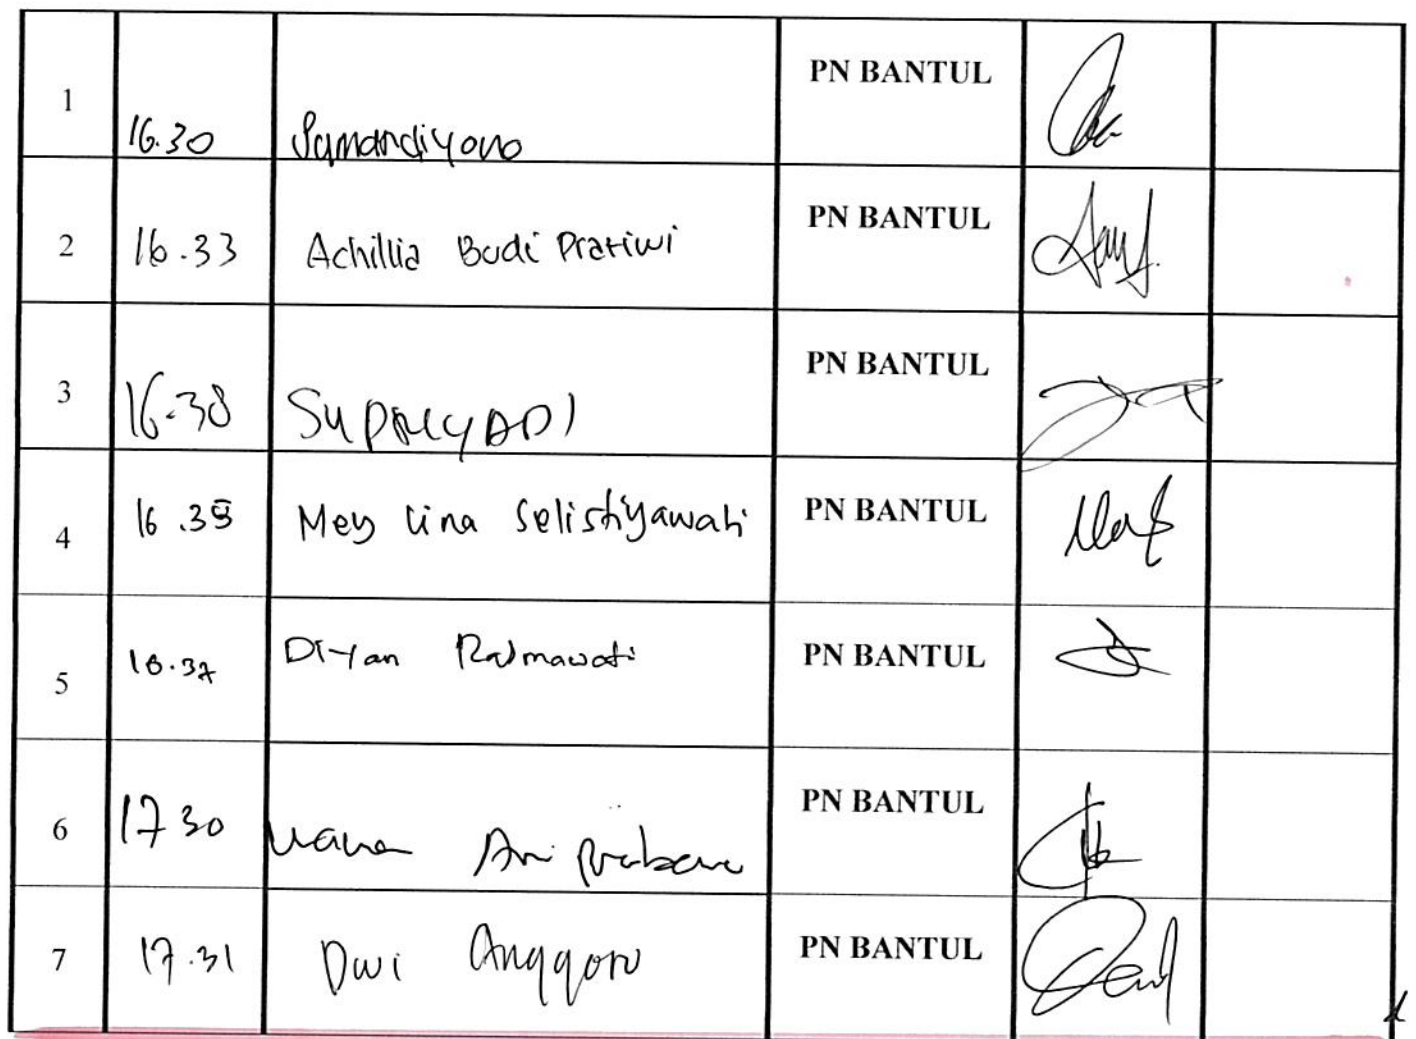 1 16.30 Samandiyono PN BANTUL
2 16.33 Achillia Budi Pratiwi PN BANTUL
3 16.38 SUPRIYADI PN BANTUL
4 16.35 Mey Lina Selistiyawati PN BANTUL
5 16.37 Diyan Ratmawati PN BANTUL
6 17 30 PN BANTUL
7 17.31 Dwi Anggoro PN BANTUL